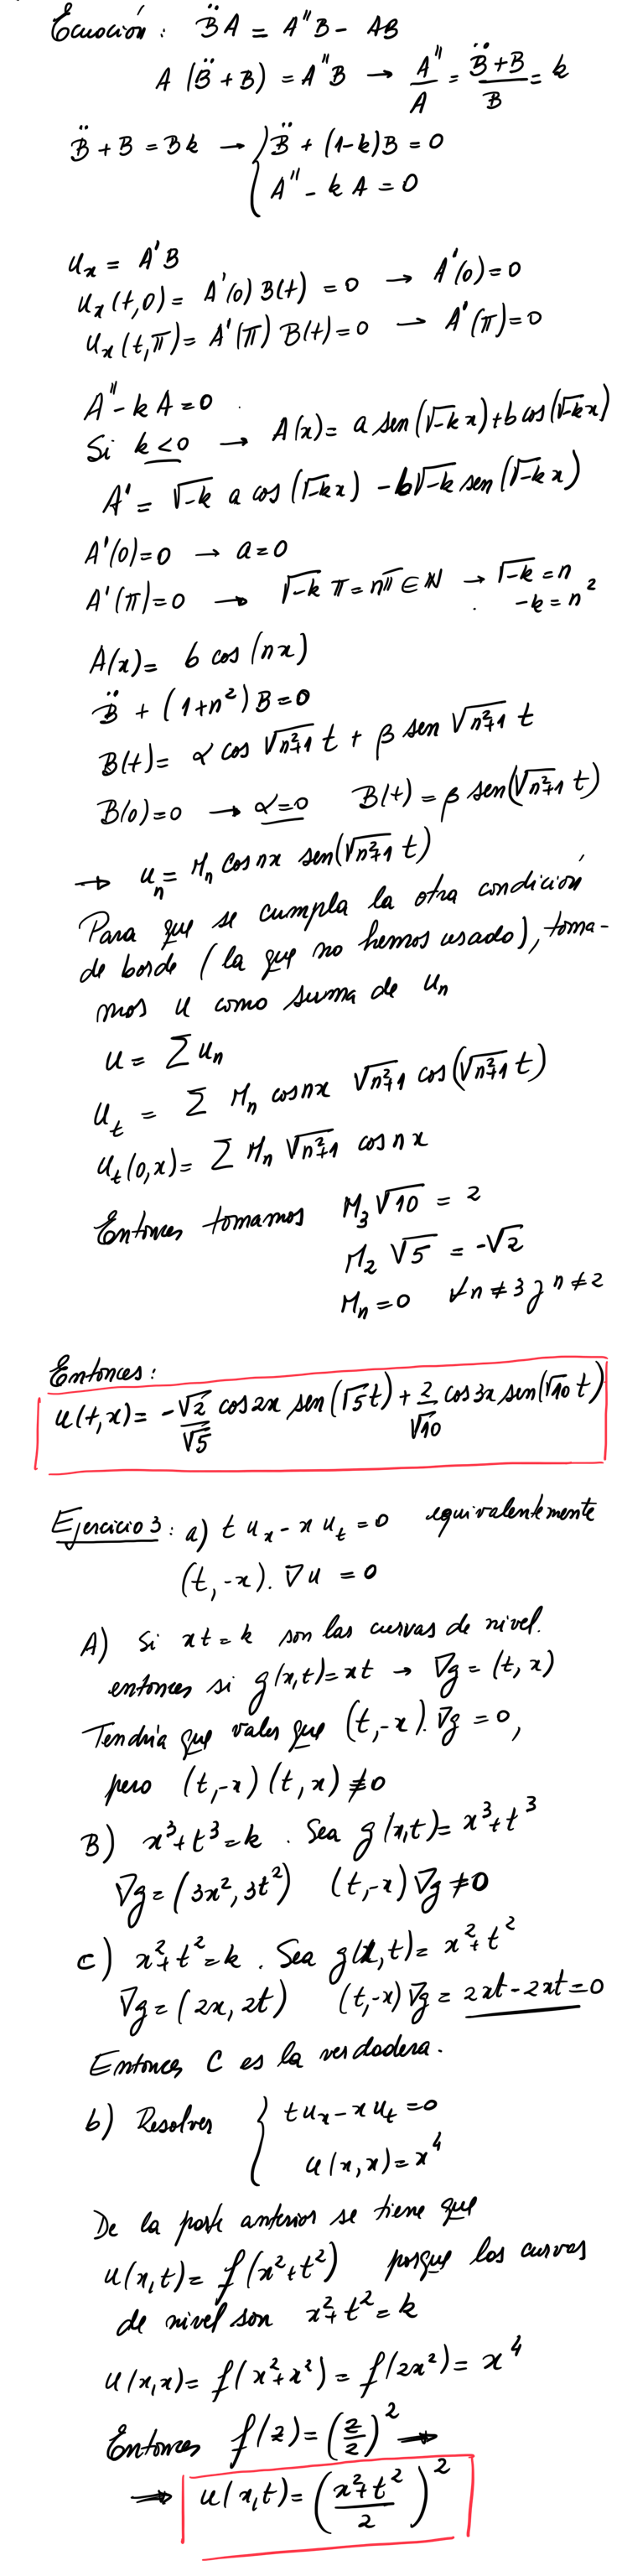 Ecuación: B̈A = A''B - AB
A (B̈ + B) = A''B → A''/A = (B̈ + B)/B = k
B̈ + B = Bk → { B̈ + (1-k)B = 0
A'' - kA = 0
u_x = A'B
u_x(t,0) = A'(0) B(t) = 0 → A'(0) = 0
u_x(t,π) = A'(π) B(t) = 0 → A'(π) = 0
A'' - kA = 0
Si k<0 → A(x) = a sen(√-k x) + b cos(√-k x)
A' = √-k a cos(√-k x) - b√-k sen(√-k x)
A'(0)=0 → a=0
A'(π)=0 → √-k π = nπ ∈ N → √-k = n
-k = n²
A(x) = b cos(nx)
B̈ + (1+n²)B = 0
B(t) = α cos √n²+1 t + β sen √n²+1 t
B(0)=0 → α=0 B(t) = β sen(√n²+1 t)
→ u_n = M_n cos nx sen(√n²+1 t)
Para que se cumpla la otra condición
de borde (la que no hemos usado), toma-
mos u como suma de u_n
u = Σ u_n
u_t = Σ M_n cos nx √n²+1 cos(√n²+1 t)
u_t(0,x) = Σ M_n √n²+1 cos nx
Entonces tomamos M_3 √10 = 2
M_2 √5 = -√2
M_n = 0 ∀n ≠ 3 y n ≠ 2
Entonces:
u(t,x) = -√2/√5 cos 2x sen(√5 t) + 2/√10 cos 3x sen(√10 t)
Ejercicio 3: a) t u_x - x u_t = 0 equivalentemente
(t,-x). ∇u = 0
A) Si xt = k son las curvas de nivel.
entonces si g(x,t) = xt → ∇g = (t, x)
Tendría que valer que (t,-x). ∇g = 0,
pero (t,-x)(t,x) ≠ 0
B) x³+t³ = k . Sea g(x,t) = x³+t³
∇g = (3x², 3t²) (t,-x) ∇g ≠ 0
C) x²+t² = k . Sea g(x,t) = x²+t²
∇g = (2x, 2t) (t,-x) ∇g = 2xt - 2xt = 0
Entonces C es la verdadera.
b) Resolver { t u_x - x u_t = 0
u(x,x) = x⁴
De la parte anterior se tiene que
u(x,t) = f(x²+t²) porque las curvas
de nivel son x²+t² = k
u(x,x) = f(x²+x²) = f(2x²) = x⁴
Entonces f(z) = (z/2)² →
→ u(x,t) = ((x²+t²)/2)²